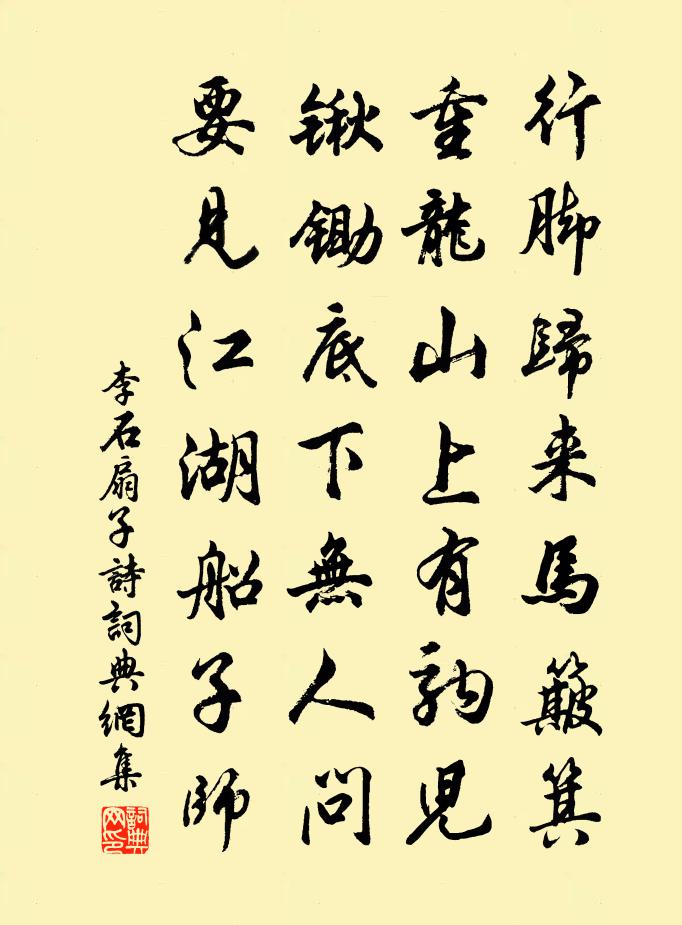 行脚歸来馬簸箕
重龍山上有駒兒
鍬鋤底下無人問
要見江湖船子師
李石扇子詩詞典網集
詞典网印